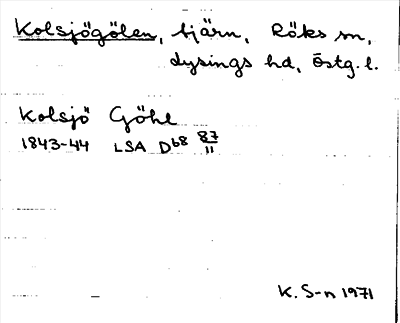 Kolsjögölen, tjärn, Röks sn,
Lysings hd, Östg. l.
Kolsjö Göhl
1843-44 LSA D68 87/11
K. S-n 1971